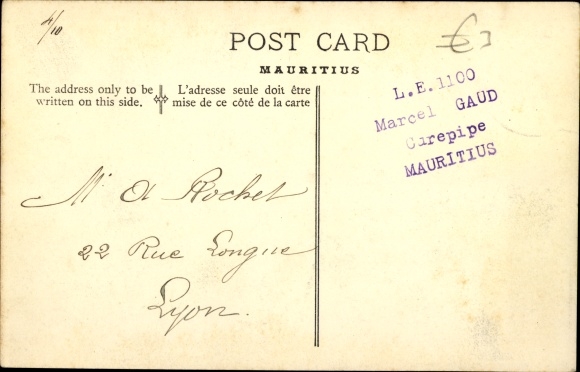 4/10
POST CARD
€3
MAURITIUS
The address only to be
written on this side.
L'adresse seule doit être
mise de ce côté de la carte
L.E.1100
Marcel GAUD
Curepipe
MAURITIUS
Mr A Rochet
22 Rue Longue
Lyon.